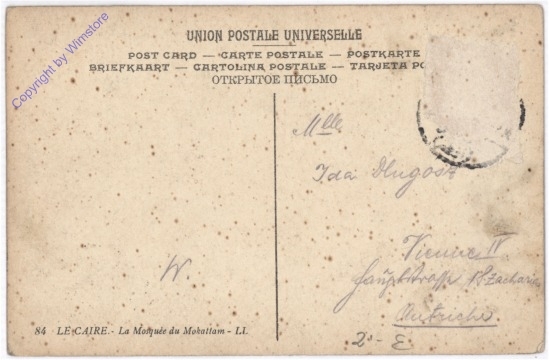 UNION POSTALE UNIVERSELLE
POST CARD — CARTE POSTALE — POSTKARTE
BRIEFKAART — CARTOLINA POSTALE — TARJETA PO
ОТКРЫТОЕ ПИСЬМО
Copyright by Wimstore
Mlle
Ida Dlugosz
Vienne IV
Hauptstrasse
Autriche
W.
84 LE CAIRE. - La Mosquée du Mokattam - LL.